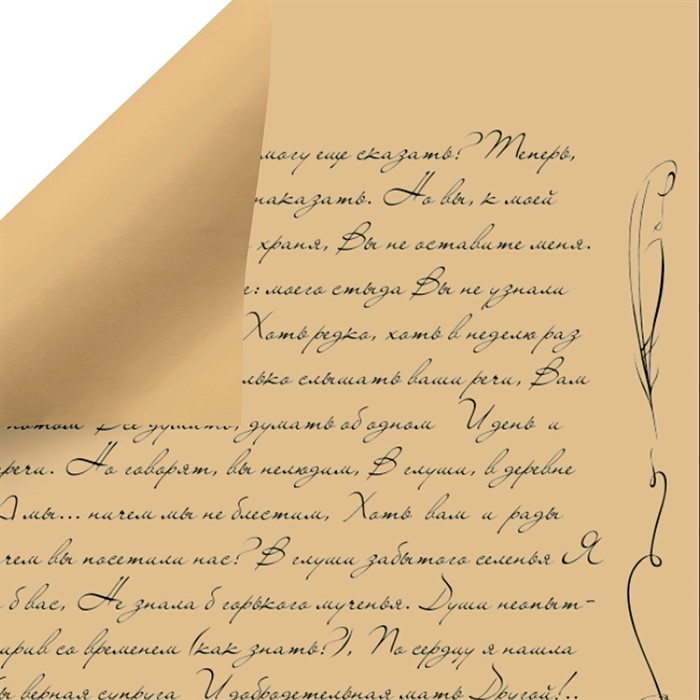 могу еще сказать? Теперь,
наказать. Но вы, к моей
храня, Вы не оставите меня.
: моего стыда Вы не узнали
Хоть редко, хоть в неделю раз
слышать ваши речи, Вам
думать об одном И день и
речи. Но говорят, вы нелюдим, В глуши, в деревне
А мы... ничем мы не блестим, Хоть вам и рады
чем вы посетили нас? В глуши забытого селенья Я
б вас, Не знала б горького мученья. Души неопыт-
со временем (как знать?), По сердцу я нашла
верная супруга И добродетельная мать Другой!..